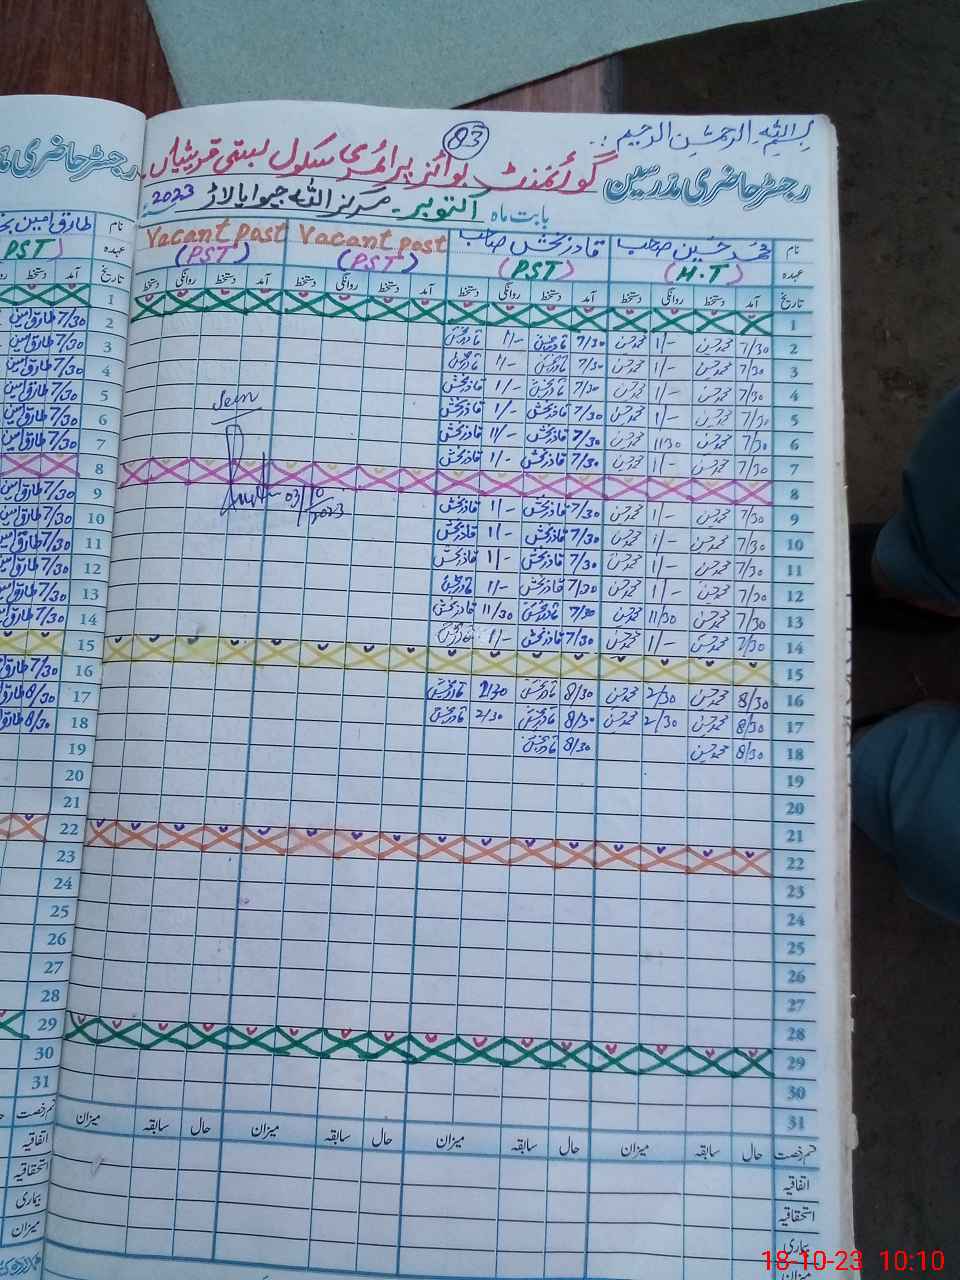 بسم اللہ الرحمٰن الرحیم
83
رجسٹر حاضری مدرسین گورنمنٹ بوائز پرائمری سکول بستی قریشیاں
بابت ماہ اکتوبر - مرکز اللہ جیوایا لاڑ 2023
نام محمد حسین صاحب قادر بخش صاحب Vacant Post Vacant Post
عہدہ (H.T) (PST) (PST) (PST)
تاریخ آمد دستخط روانگی دستخط آمد دستخط روانگی دستخط آمد دستخط روانگی دستخط آمد دستخط روانگی دستخط
1
2 7/30 محمد حسین 1/- محمد حسین 7/30 قادر بخش 1/- قادر بخش
3 7/30 محمد حسین 1/- محمد حسین 7/30 قادر بخش 1/- قادر بخش
4 7/30 محمد حسین 1/- محمد حسین 7/30 قادر بخش 1/- قادر بخش
5 7/30 محمد حسین 1/- محمد حسین 7/30 قادر بخش 1/- قادر بخش
6 7/30 محمد حسین 11/30 محمد حسین 7/30 قادر بخش 11/- قادر بخش
7 7/30 محمد حسین 1/- محمد حسین 7/30 قادر بخش 1/- قادر بخش
8
9 7/30 محمد حسین 1/- محمد حسین 7/30 قادر بخش 1/- قادر بخش
10 7/30 محمد حسین 1/- محمد حسین 7/30 قادر بخش 1/- قادر بخش
11 7/30 محمد حسین 1/- محمد حسین 7/30 قادر بخش 1/- قادر بخش
12 7/30 محمد حسین 1/- محمد حسین 7/30 قادر بخش 1/- قادر بخش
13 7/30 محمد حسین 11/30 محمد حسین 7/30 قادر بخش 11/30 قادر بخش
14 7/30 محمد حسین 1/- محمد حسین 7/30 قادر بخش 1/- قادر بخش
15
16 8/30 محمد حسین 2/30 محمد حسین 8/30 قادر بخش 2/30 قادر بخش
17 8/30 محمد حسین 2/30 محمد حسین 8/30 قادر بخش 2/30 قادر بخش
18 8/30 محمد حسین 8/30 قادر بخش
19
20
21
22
23
24
25
26
27
28
29
30
31
Seen
03/10/2023
قسم رخصت حال سابقہ میزان حال سابقہ میزان حال سابقہ میزان حال سابقہ میزان
اتفاقیہ
استحقاقیہ
بیماری
میزان
رجسٹر حاضری
نام طارق امین
عہدہ PST)
تاریخ آمد دستخط
1
2 7/30 طارق امین
3 7/30 طارق امین
4 7/30 طارق امین
5 7/30 طارق امین
6 7/30 طارق امین
7 7/30 طارق امین
8
9 7/30 طارق امین
10 7/30 طارق امین
11 7/30 طارق امین
12 7/30 طارق امین
13 7/30 طارق امین
14 7/30 طارق امین
15
16 7/30 طارق
17 8/30 طارق
18 8/30 طارق
19
20
21
22
23
24
25
26
27
28
29
30
31
قسم رخصت
اتفاقیہ
استحقاقیہ
بیماری
میزان
18-10-23 10:10